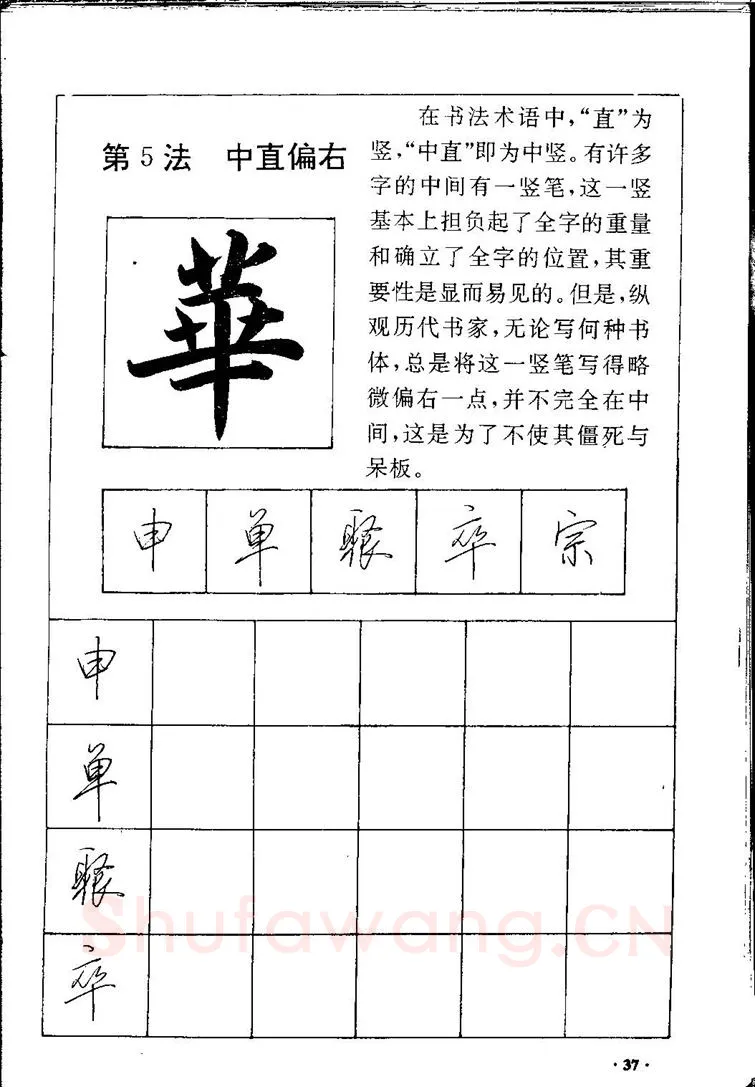 第5法 中直偏右
在书法术语中，“直”为
竖，“中直”即为中竖。有许多
字的中间有一竖笔，这一竖
基本上担负起了全字的重量
和确立了全字的位置，其重
要性是显而易见的。但是，纵
观历代书家，无论写何种书
体，总是将这一竖笔写得略
微偏右一点，并不完全在中
间，这是为了不使其僵死与
呆板。
華
申 单 聚 卒 宗
申
单
聚
卒
Shufawang.CN
·37·